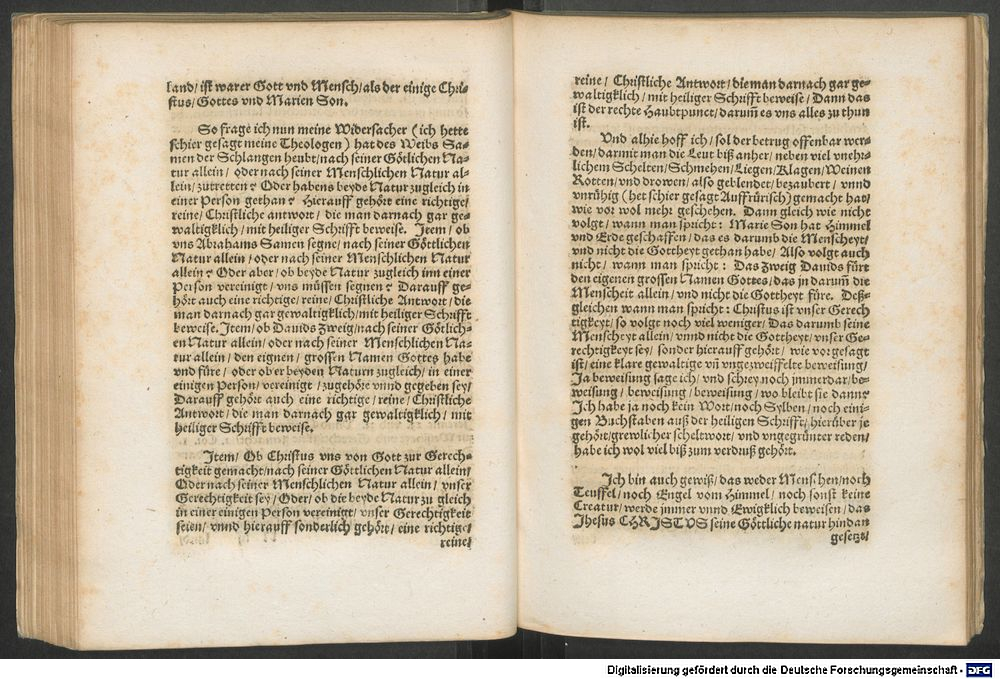 land/ ist warer Gott vnd Mensch/ als der einige Chri-
stus/ Gottes vnd Marien Son.
So frage ich nun meine Widersacher (ich hette
schier gesagt meine Theologen) hat des Weibs Sa-
men der Schlangen heubt/ nach seiner Götlichen Na-
tur allein/ oder nach seiner Menschlichen Natur al-
lein/ zutretten? Oder habens beyde Natur zugleich in
einer Person gethan? Hierauff gehört eine richtige/
reine/ Christliche antwort/ die man darnach gar ge-
waltigklich/ mit heiliger Schrifft beweise. Item/ ob
vns Abrahams Samen segne/ nach seiner Göttlichen
Natur allein/ oder nach seiner Menschlichen Natur
allein? Oder aber/ ob beyde Natur zugleich inn einer
Person vereinigt/ vns müssen segnen? Darauff ge-
hört auch eine richtige/ reine/ Christliche Antwort/ die
man darnach gar gewaltigklich/ mit heiliger Schrifft
beweise. Item/ ob Dauids Zweig/ nach seiner Götlich-
en Natur allein/ oder nach seiner Menschlichen Na-
tur allein/ den eignen/ grossen Namen Gottes habe
vnd füre/ oder ob er beyden Naturn zugleich/ in einer
einigen Person/ vereinigt/ zugehöre vnnd gegeben sey/
Darauff gehört auch eine richtige/ reine/ Christliche
Antwort/ die man darnach gar gewaltigklich/ mit
heiliger Schrifft beweise.
Item/ Ob Christus vns von Gott zur Gerech-
tigkeit gemacht/ nach seiner Göttlichen Natur allein/
Oder nach seiner Menschlichen Natur allein/ vnser
Gerechtigkeit sey/ Oder/ ob die beyde Natur zu gleich
in einer einigen Person vereinigt/ vnser Gerechtigkeit
seien/ vnnd hierauff sonderlich gehört/ eine richtige/
reine/
reine/ Christliche Antwort/ die man darnach gar ge-
waltigklich/ mit heiliger Schrifft beweise/ Dann das
ist der rechte Haubtpunct/ darum̃ es vns alles zu thun
ist.
Vnd alhie hoff ich/ sol der betrug offenbar wer-
den/ darmit man die Leut biß anher/ neben viel vnehr-
lichem Schelten/ Schmehen/ Liegen/ Klagen/ Weinen
Rotten/ vnd drowen/ also geblendet/ bezaubert/ vnnd
vnrühig (het schier gesagt Auffrürisch) gemacht hat/
wie vor wol mehr geschehen. Dann gleich wie nicht
volgt/ wann man spricht: Marie Son hat Himmel
vnd Erde geschaffen/ das es darumb die Menscheyt/
vnd nicht die Gottheyt gethan habe/ Also volgt auch
nicht/ wann man spricht: Das Zweig Dauids fürt
den eigenen grossen Namen Gottes/ das jn darum̃ die
Menscheit allein/ vnd nicht die Gottheyt füre. Deß-
gleichen wann man spricht: Christus ist vnser Gerech
tigkeyt/ so volgt noch viel weniger/ Das darumb seine
Menscheyt allein/ vnnd nicht die Gottheyt/ vnser Ge-
rechtigkeyt sey/ sonder hierauff gehört/ wie vor gesagt
ist/ eine klare gewaltige vñ vngezweiffelte beweisung/
Ja beweisung sage ich/ vnd schrey noch jmmerdar/ be-
weisung/ beweisung/ beweisung/ wo bleibt sie dann?
Ich habe ja noch kein Wort/ noch Sylben/ noch eini-
gen Buchstaben auß der heiligen Schrifft/ hierüber je
gehört/ grewlicher scheltwort/ vnd vngegrünter reden/
habe ich wol viel biß zum verdruß gehört.
Ich bin auch gewiß/ das weder Menschen/ noch
Teuffel/ noch Engel vom Himmel/ noch sonst keine
Creatur/ werde jmmer vnnd Ewigklich beweisen/ das
Jhesus CHRISTVS seine Göttliche natur hindan
gesetzt/
Digitalisierung gefördert durch die Deutsche Forschungsgemeinschaft - DFG